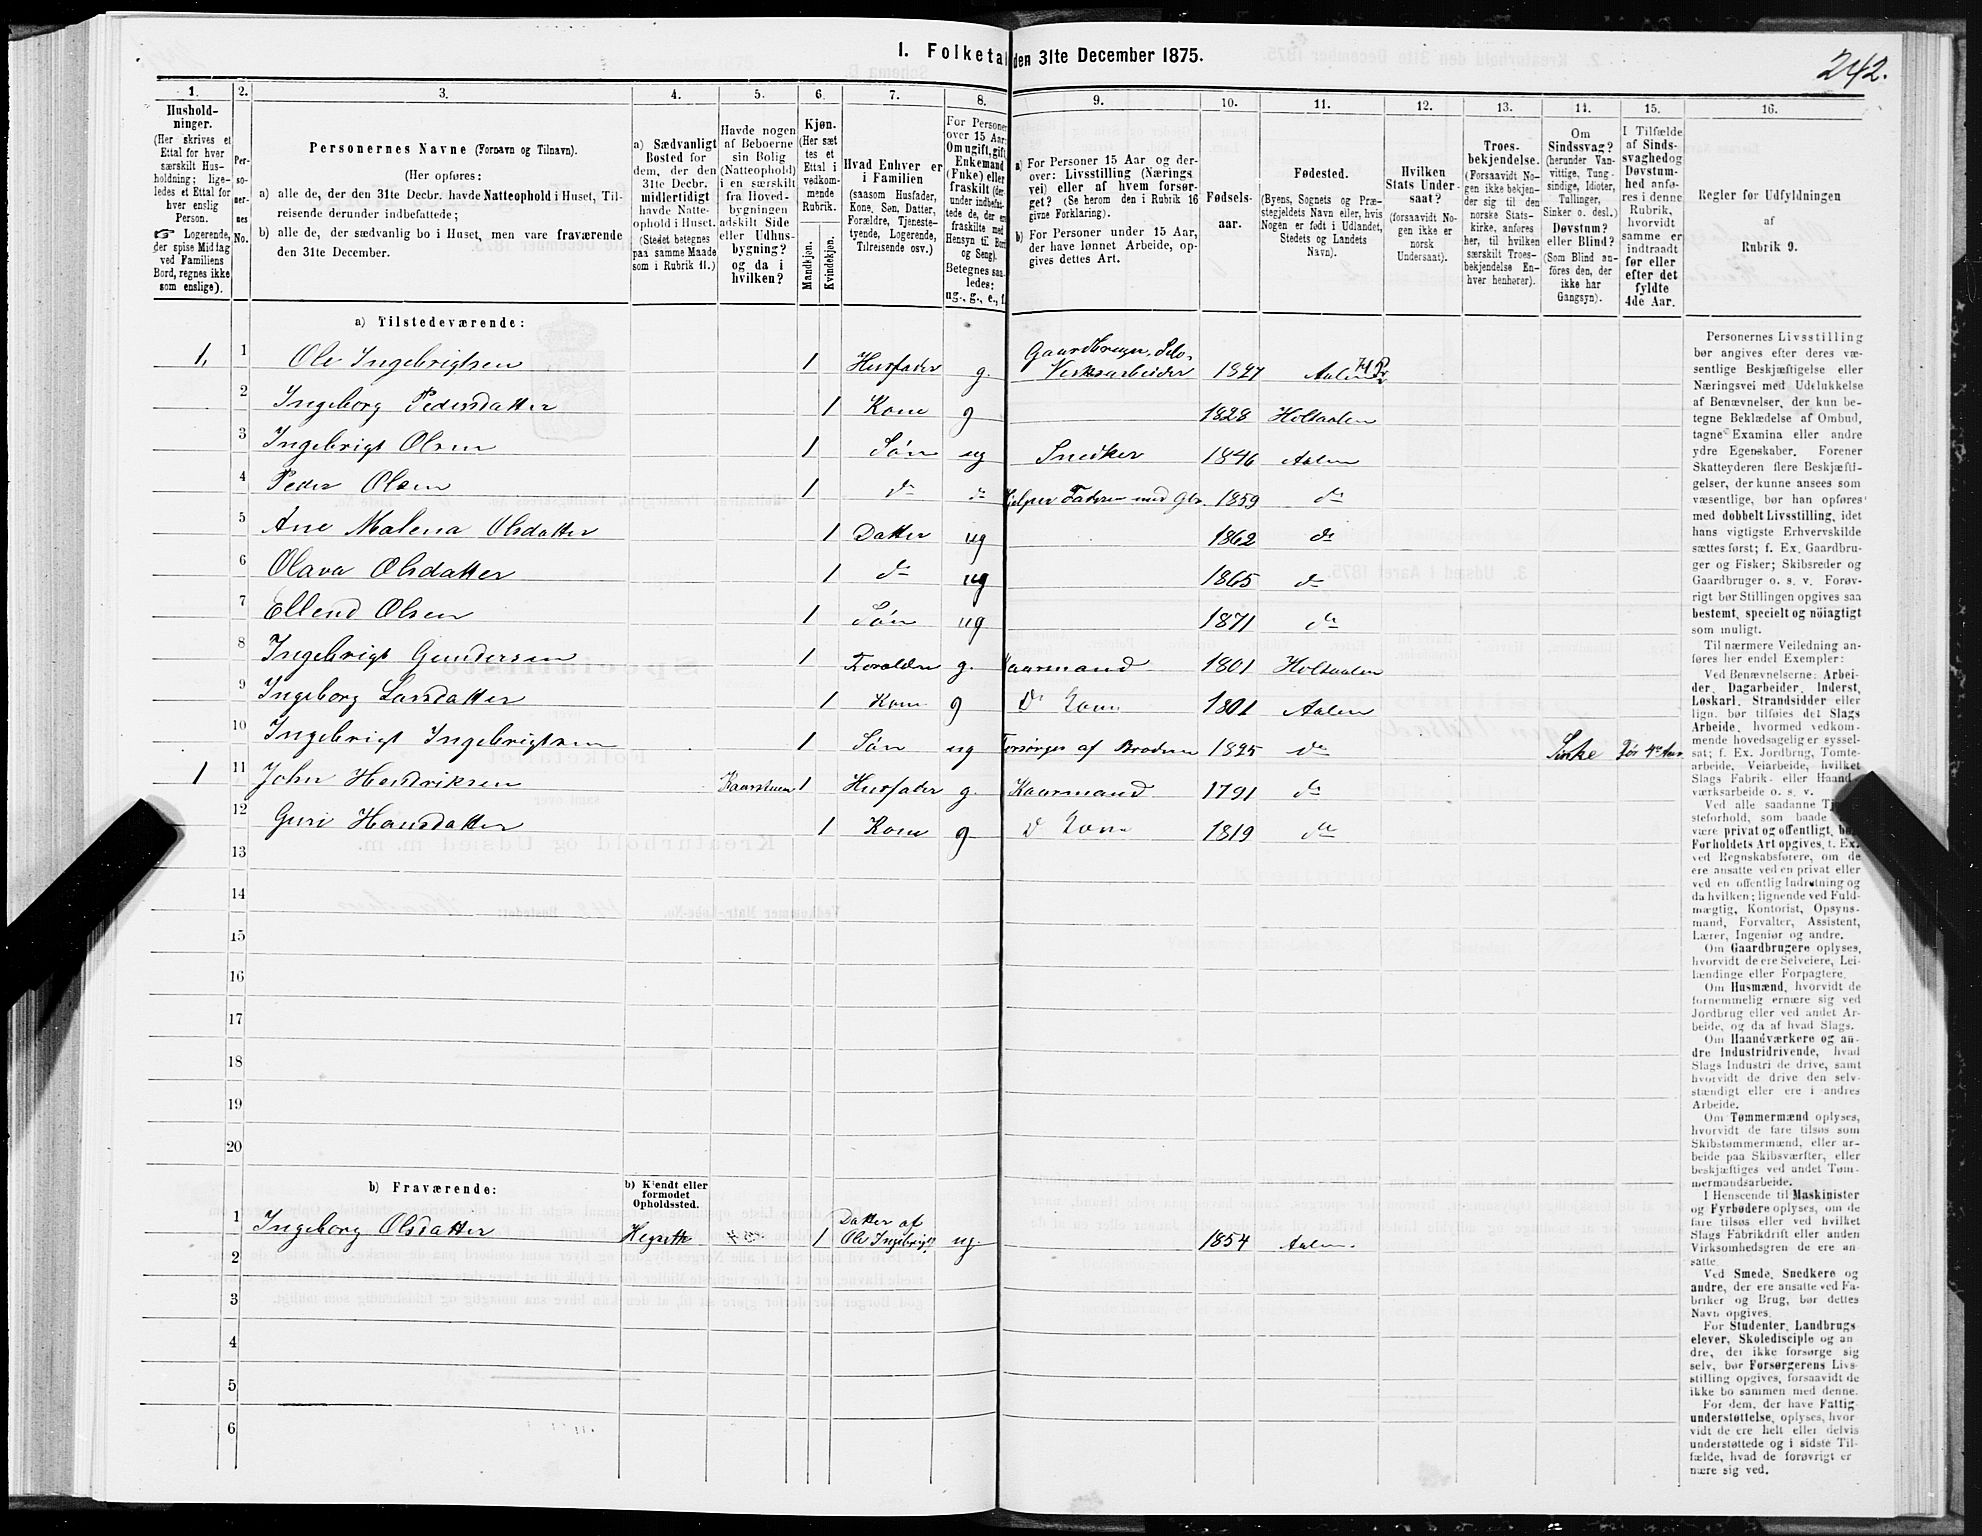 242.
1. Folketal den 31te December 1875.
1. Husholdninger. (Her skrives et Ettal for hver særskilt Husholdning; ligeledes et Ettal for hver enslig Person. ☞ Logerende, der spise Middag ved Familiens Bord, regnes ikke som enslige).
2. Personernes No.
3. Personernes Navne (Fornavn og Tilnavn). (Her opføres:
a) alle de, der den 31te Decbr. havde Natteophold i Huset, Tilreisende derunder indbefattede;
b) alle de, der sædvanlig bo i Huset, men vare fraværende den 31te December.
4. a) Sædvanligt Bosted for dem, der den 31te Decbr. midlertidigt havde Natteophold i Huset. (Stedet betegnes paa samme Maade som i Rubrik 11.)
5. Havde nogen af Beboerne sin Bolig (Natteophold) i en særskilt fra Hovedbygningen adskilt Side eller Udhusbygning? og da i hvilken?
6. Kjøn. (Her sættes et Ettal i vedkommende Rubrik. Mandkjøn. Kvindekjøn.
7. Hvad Enhver er i Familien (saasom Husfader, Kone, Søn, Datter, Forældre, Tjenestetyende, Logerende, Tilreisende osv.)
8. For Personer over 15 Aar: Om ugift, gift, Enkemand (Enke) eller fraskilt (derunder indbefattede de, der ere fraskilte med Hensyn til Bord og Seng). Betegnes saaledes: ug., g., e., f.
9. a) For Personer 15 Aar og derover: Livsstilling (Næringsvei) eller af hvem forsørget? (Se herom den i Rubrik 16 givne Forklaring).
b) For Personer under 15 Aar, der have lønnet Arbeide, opgives dettes Art.
10. Fødselsaar.
11. Fødested. (Byens, Sognets og Præstegjeldets Navn eller, hvis Nogen er født i Udlandet, Stedets og Landets Navn).
12. Hvilken Stats Undersaat? (forsaavidt Nogen ikke er norsk Undersaat).
13. Troesbekjendelse. (Forsaavidt Nogen ikke bekjender sig til den norske Statskirke, anføres her, til hvilken særskilt Troesbekjendelse Enhver henhører).
14. Om Sindssvag? (herunder Vanvittige, Tungsindige, Idioter, Tullinger, Sinker o. desl.) Døvstum? eller Blind? (Som Blind anføres den, der ikke har Gangsyn).
15. I Tilfælde af Sindssvaghed og Døvstumhed anføres i denne Rubrik, hvorvidt samme er indtraadt før eller efter det fyldte 4de Aar.
16. Regler før Udfyldningen af Rubrik 9.
a) Tilstedeværende:
1, 1 Ole Ingebrigtsen 1 Husfader g. Gaardbruger, Selv. Værksarbeider 1827 Aalen
2 Ingeborg Pedersdatter 1 Kone g 1828 Holtaalen
3 Ingebrigt Olsen 1 Søn ug Snedker 1846 Aalen
4 Peder Olsen 1 do do hjelper Faderen med Gbr. 1859 do
5 Ane Malena Olsdatter 1 Datter ug 1862 do
6 Olava Olsdatter 1 do ug 1865 do
7 Ellend Olsen 1 Søn ug 1871 do
8 Ingebrigt Gundersen 1 Forældre g. Kaarmand 1801 Holtaalen
9 Ingeborg Larsdatter 1 Kone g Do Kone 1801 Aalen
10 Ingebrigt Ingebrigtsen 1 Søn ug Forsørges af Broderen 1825 do Sinke Før 4de Aar
1 11 John Hendriksen Kaarstuen 1 Husfader g. Kaarmand 1791 do
12 Guri Hansdatter 1 Kone g Do Kone 1819 do
13
14
15
16
17
18
19
20
b) Fraværende:
b) Kjendt eller formodet Opholdssted.
1 Ingeborg Olsdatter 1 Datter af Ole Ingebrigts. ug. 1854 Aalen.
2
3
4
5
6
Personernes Livsstilling
bør angives efter deres væ-
sentlige Beskjæftigelse eller
Næringsvei med Udelukkelse
af Benævnelser, der kun be-
tegne Beklædelse af Ombud,
tagne Examina eller andre
ydre Egenskaber. Forener
Skatteyderen flere Beskjæfti-
gelser, der kunne ansees som
væsentlige, bør han opføres
med dobbelt Livsstilling, idet
hans vigtigste Erhvervskilde
sættes først; f. Ex. Gaardbru-
ger og Fisker; Skibsreder og
Gaardbruger o. s. v. Forøv-
rigt bør Stillingen opgives saa
bestemt, specielt og nöiagtigt
som muligt.
Til nærmere Veiledning an-
føres her endel Exempler:
Ved Benævnelserne: Arbei-
der, Dagarbeider, Inderst,
Løskarl, Strandsidder eller
lign. bør tilføies det Slags
Arbeide, hvormed vedkom-
mende hovedsagelig er syssel-
sat; f. Ex. Jordbrug, Tomte-
arbeide, Veiarbeide, hvilket
Slags Fabrik- eller Haand-
værksarbeide o. s. v.
Ved alle saadanne Tje-
steforhold, som baade
være privat og offentligt, bør
Forholdets Art opgives, f. Ex.
ved Regnskabsførere, om de
ere ansatte ved en privat eller
ved en offentlig Indretning og
da hvilken; lignende ved Fuld-
mægtig, Kontorist, Opsyns-
mand, Forvalter, Assistent,
Lærer, Ingeniør og andre.
Om Gaardbrugere oplyses,
hvorvidt de ere Selveiere, Lei-
lændinge eller Forpagtere.
Om Husmænd, hvorvidt de
fornemmelig ernære sig ved
Jordbrug eller ved andet Ar-
beide, og da af hvad Slags.
Om Haandværkere og an-
dre Industridrivende, hvad
Slags Industri de drive, samt
hvorvidt de drive den selv-
stændigt eller ere i andres
Arbeide.
Om Tømmermænd oplyses,
hvorvidt de fare tilsøs som
Skibstømmermænd, eller ar-
beide paa Skibsværfter, eller
beskjæftiges ved andet Tøm-
mermandsarbeide.
I Henseende til Maskinister
og Fyrbødere oplyses, om de
fare tilsøs eller ved hvilket
Slags Fabrikdrift eller anden
Virksomhedsgren de ere an-
satte.
Ved Smede, Snedkere og
andre, der ere ansatte ved Fa-
briker og Brug, bør dettes
Navn opgives.
For Studenter, Landbrugs-
elever, Skoledisciple og an-
dre, der ikke forsørge sig
selv, bør Forsørgerens Livs-
stilling opgives, forsaavidt de
ikke bo sammen med denne.
For dem, der have Fattig-
understøttelse, oplyses, hvor-
vidt de ere helt eller delvis
understøttede og i sidste Til-
fælde, hvad de forøvrigt er-
nære sig ved.